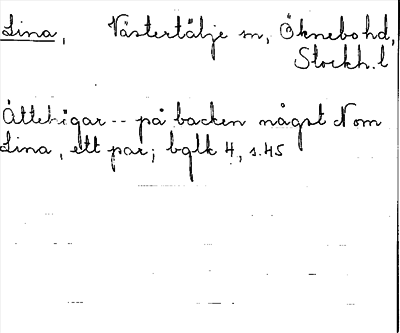 Lina, Västertälje sn, Öknebo hd,
Stockh. l
Ättehögar -- på backen någst N om
Lina, ett par; bglk 4, s. 45